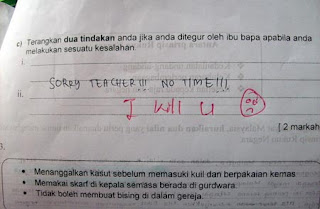 c) Terangkan dua tindakan anda jika anda ditegur oleh ibu bapa apabila anda
melakukan sesuatu kesalahan.
i.
SORRY TEACHER!!! NO TIME!!!
ii.
I kill U
[2 markah
3.
• Menanggalkan kasut sebelum memasuki kuil dan berpakaian kemas
• Memakai skarf di kepala semasa berada di gurdwara.
• Tidak boleh membuat bising di dalam gereja.